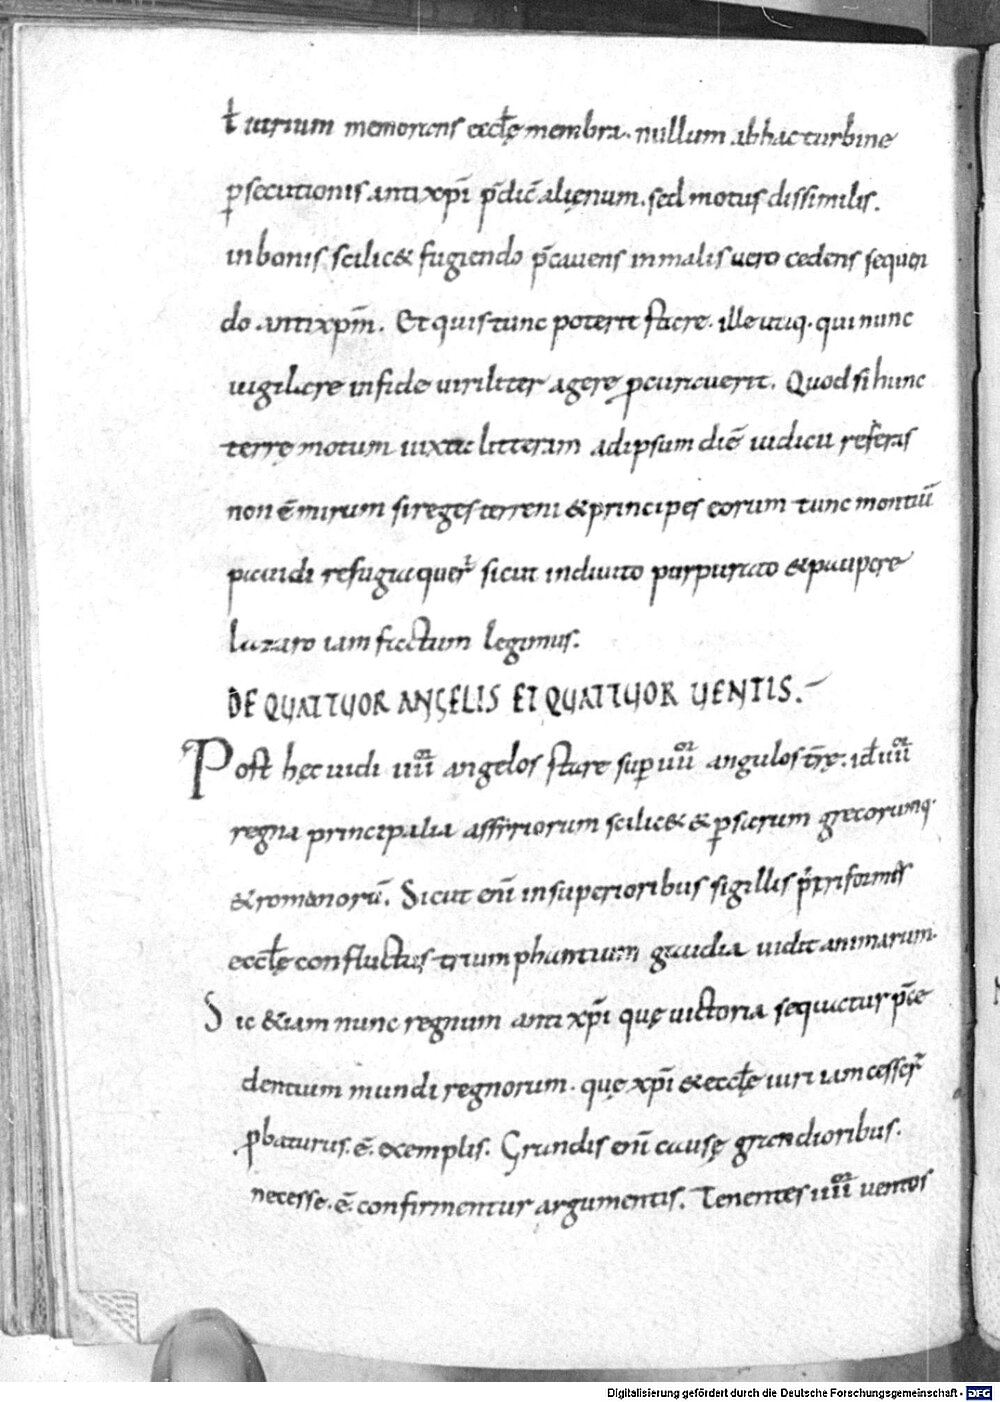 ł uirium memorans eccłę membra. nullum ab hac turbine
p̱secutionis antixp̄i p̄dic̄ alięnum. sed motus dissimilis.
in bonis scilic& fugiendo p̄cauens in malis uero cedens sequen
do antixpm̄. Et quis tunc poterit stare. ille utiq. qui nunc
uigilare in fide uiriliter agere p̱curauerit. Quod si hunc
terrę motum iuxta litteram ad ipsum diē iudicii referas
non ē mirum si reges terreni & principes eorum tunc montiū
pauidi refugia quer̄ sicut in diuito purpurato & paupere
lazaro iam factum legimus.
DE QUATTUOR ANGELIS ET QUATTUOR UENTIS.
Post hęc uidi iiii angelos stare sup̱ iiii angulos tr̄ę. id ł iiii
regna principalia assiriorum scilic& & p̱sarum grecorumq.
& romanorū. Sicut enī in superioribus sigillis p̱ triformes
eccłę confluctus triumphantium gaudia uidit animarum.
Sic &iam nunc regnum antixp̄i quę uictoria sequatur p̄ce
dentium mundi regnorum. quę xp̄i & eccłę iuri iam cesser̄
p̱baturus. ē. exemplis. Grandis enī causę grandioribus.
necesse. ē. confirmentur argumentis. Tenentes iiii uentos
Digitalisierung gefördert durch die Deutsche Forschungsgemeinschaft - DFG